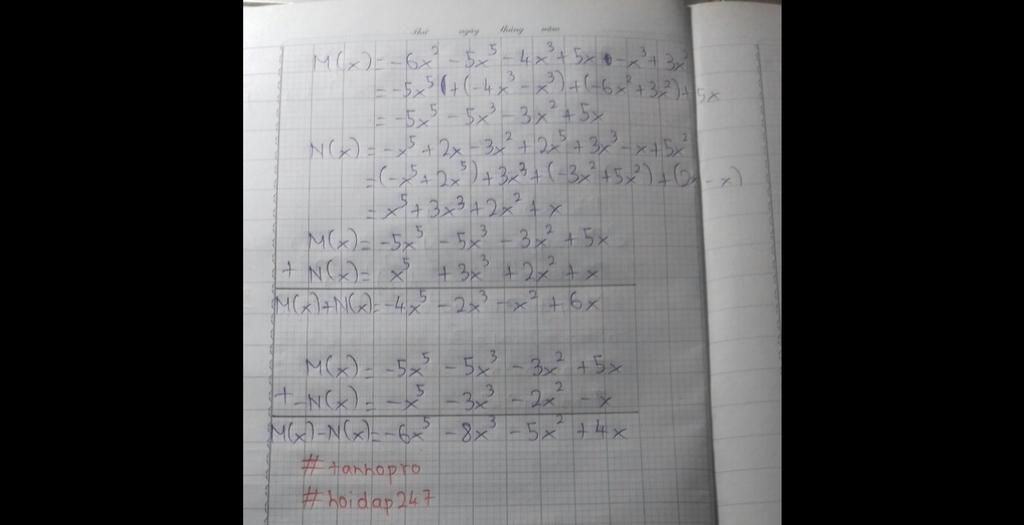 Thứ ngày tháng năm
M(x) = -6x² - 5x⁵ - 4x³ + 5x - x³ + 3x²
= -5x⁵ + (-4x³ - x³) + (-6x² + 3x²) + 5x
= -5x⁵ - 5x³ - 3x² + 5x
N(x) = -x⁵ + 2x - 3x² + 2x⁵ + 3x³ - x + 5x²
= (-x⁵ + 2x⁵) + 3x³ + (-3x² + 5x²) + (2x - x)
= x⁵ + 3x³ + 2x² + x
M(x) = -5x⁵ - 5x³ - 3x² + 5x
+ N(x) = x⁵ + 3x³ + 2x² + x
M(x)+N(x) = -4x⁵ - 2x³ - x² + 6x
M(x) = -5x⁵ - 5x³ - 3x² + 5x
+ -N(x) = -x⁵ - 3x³ - 2x² - x
M(x)-N(x) = -6x⁵ - 8x³ - 5x² + 4x
# tannopro
# hoidap247